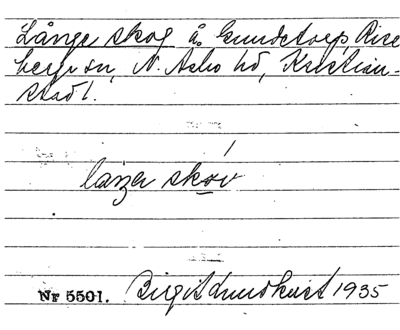 Långe skog å Gundstorp, Rise
bergs sn, N. Åsbo hd, Kristian-
stads l.
laŋər skóv
Nr 5501. Birgit Lundkvist 1935